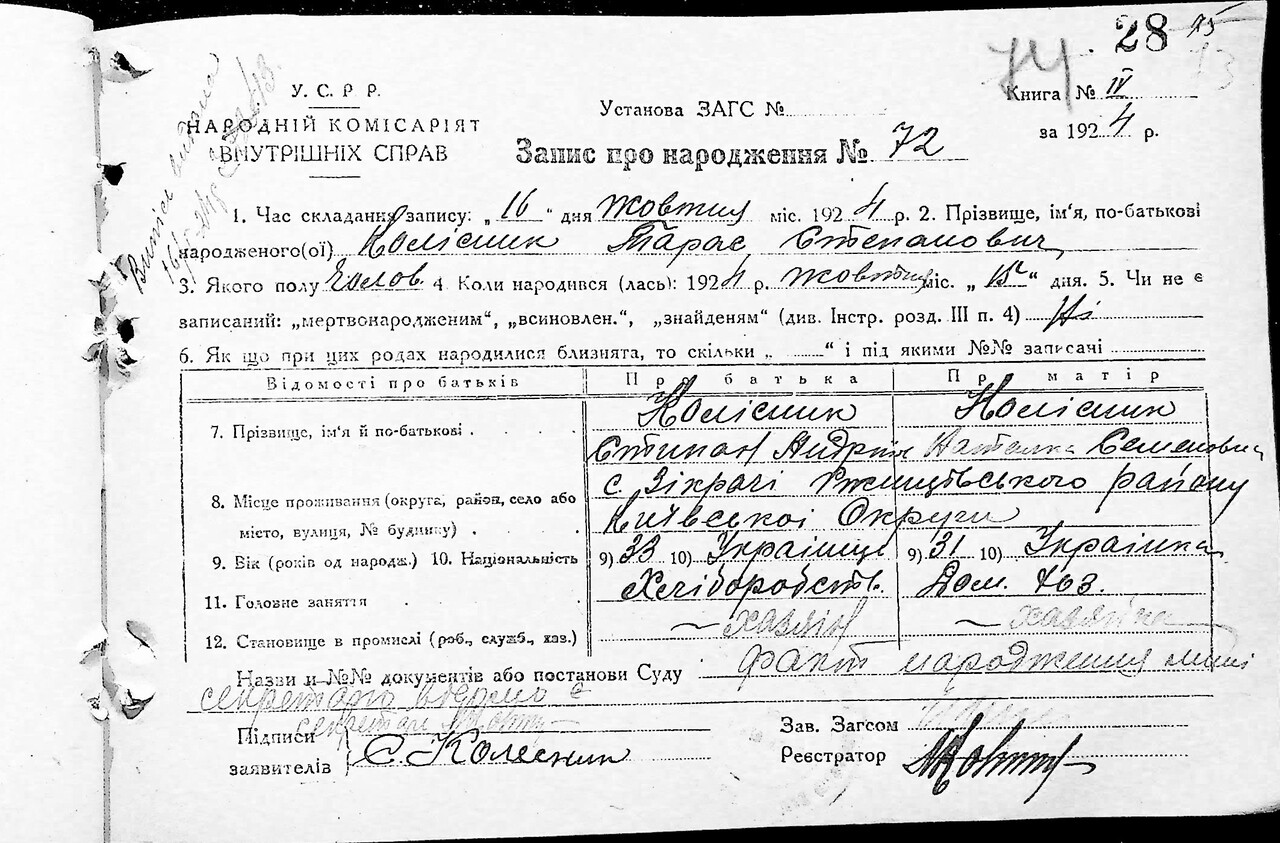 28 15
74 13
У. С. Р Р.
НАРОДНІЙ КОМІСАРІЯТ
ВНУТРІШНІХ СПРАВ
Установа ЗАГС №
Книга № IV
за 1924 р.
Запис про народження № 72
1. Час складання запису: „16“ дня жовтня міс. 1924 р. 2. Прізвище, ім'я, по-батькові
народженого(ої) Колісник Тарас Степанович
3. Якого полу Чолов 4. Коли народився (лась): 1924 р. жовтня міс. „15“ дня. 5. Чи не є
записаний: „мертвонародженим“, „всиновлен.“, „знайденям“ (див. Інстр. розд. III п. 4) Ні
6. Як що при цих родах народилися близнята, то скільки „ “ і під якими №№ записачі
Відомості про батьків Пр батька Пр матір
7. Прізвище, ім'я й по-батькові . . . . . Колісник Колісник
Стипан Андрій Наталка Семеновна
8. Місце проживання (округа, район, село або с. Зікрачі Ржищівського району
місто, вулиця, № будинку) . Київської Округи
9. Вік (років од народж.) 10. Національність 9) 33 10) Українець 9) 31 10) Українка
11. Головне заняття Хліборобств. Дом. хоз.
12. Становище в промислі (роб., служб., хаз.) — хазяїн — хазяйка
Назви и №№ документів або постанови Суду факт народження мині
секретарю відомо є
секретар
Підписи
заявителів С. Колесник
Зав. Загсом
Реєстратор
Випись видана